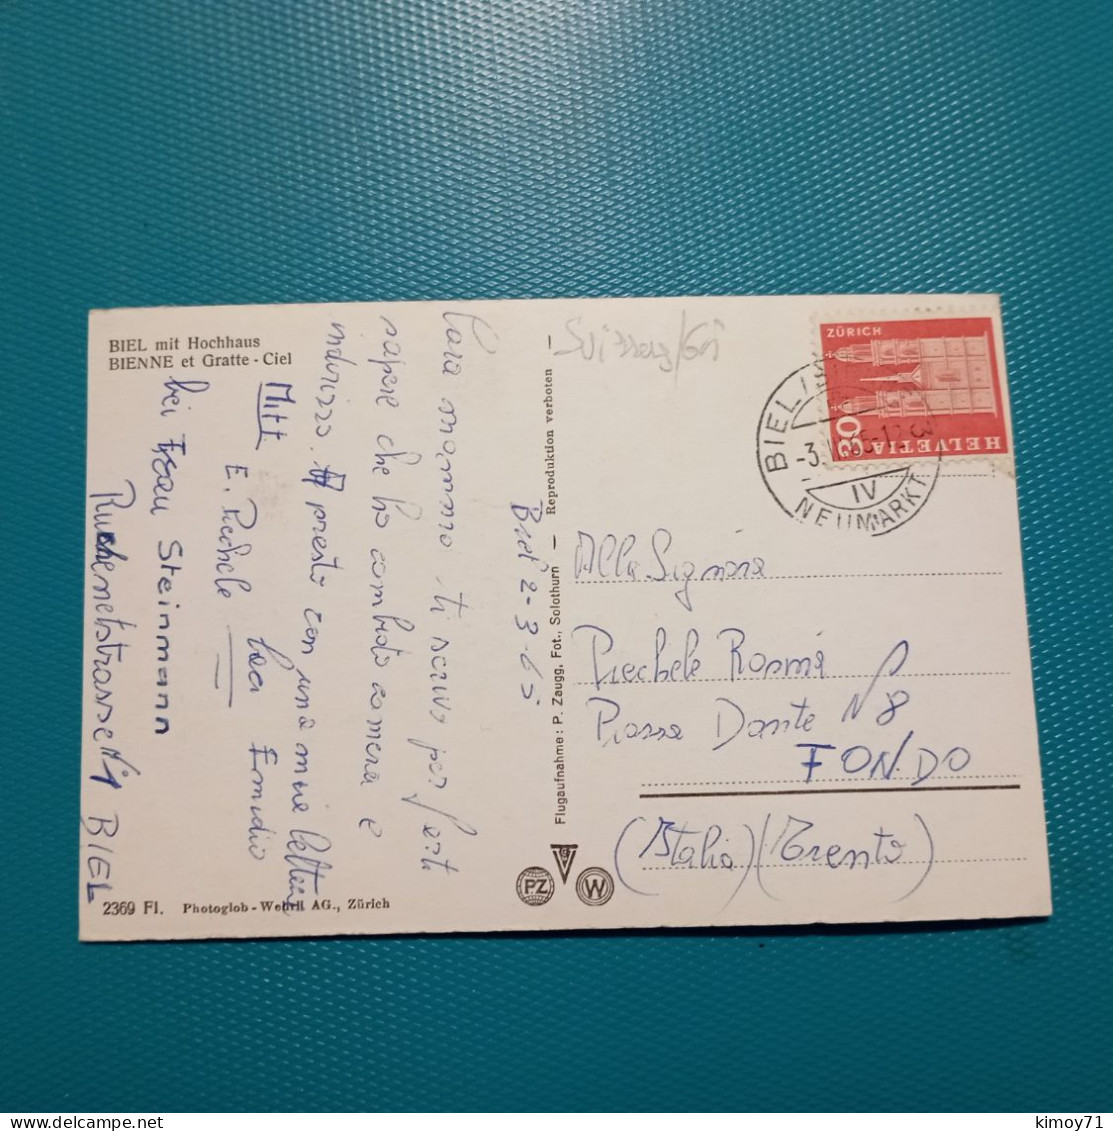 BIEL mit Hochhaus
BIENNE et Gratte-Ciel
Biel 2-3-65
Cara mamma ti scrivo per farti
sapere che ho cambiato camera e
indirizzo. presto con una mia lettera
baci Emidio
Mitt
E. Piechele
bei Frau Steinmann
Ruchenetstrasse N 4 BIEL
2369 Fl. Photoglob-Wehrli AG., Zürich
Flugaufnahme: P. Zaugg, Fot., Solothurn — Reproduktion verboten —
PZ
W
Svizzera/
ZÜRICH
30
HELVETIA
BIEL/
-3. 65-12
IV
NEUMARKT
Alla Signora
Piechele Rosina
Piazza Dante N 8
FONDO
(Italia) (Trento)
kimoy71